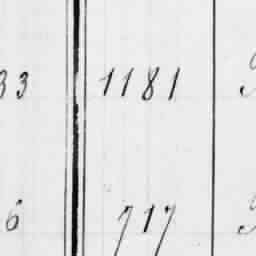 33 1181
6 717